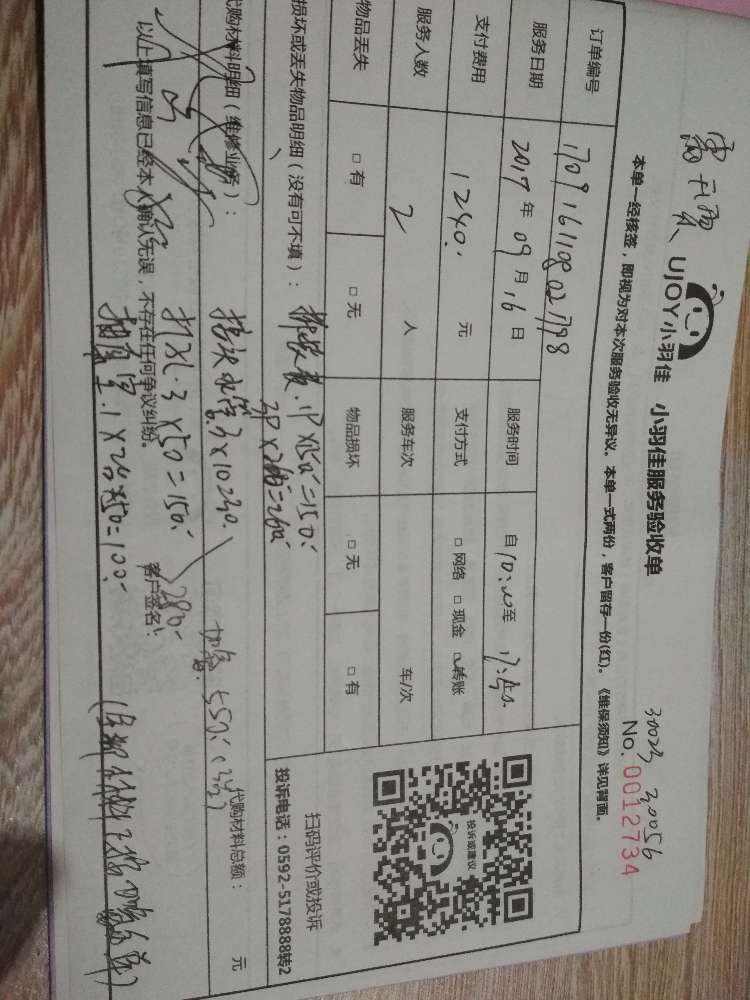 UJOY小羽佳 小羽佳服务验收单
30023 30056
No. 0012734
本单一经核签，即视为对本次服务验收无异议。本单一式两份，客户留存一份(红)。《维保须知》详见背面。
订单编号 170916110802 7798
服务日期 2017年09月16日 服务时间 自 10:20至 17:50
支付费用 1240. 元 支付方式 □ 网络 □ 现金 □ 转账
服务人数 2 人 服务车次 车/次
物品丢失 □ 有 □ 无 物品损坏 □ 无 □ 有
投诉或建议
扫码评价或投诉
投诉电话：0592-5178888转2
损坏或丢失物品明细（没有可不填）：
1P×150=150.
3P×260=260.
代购材料明细（维修业务）： 代购材料总额： 元
3×10=30.
打孔.3×50=150. 280.
加氟 550.
抽真空.1×2台×50=100.
以上填写信息已经本人确认无误，不存在任何争议纠纷。 客户签名：